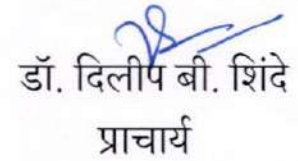 डॉ. दिलीप बी. शिंदे
प्राचार्य